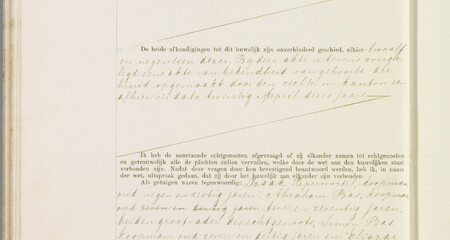 De beide afkondigingen tot dit huwelijk zijn onverhinderd geschied, alhier twaalf
en negentien dezer. Bij deze akte is tevens overge
legd eene akte van bekendheid van geboorte der
bruid opgemaakt door den rechter in kanton een
alhier in dato twintig April dezes jaars
Ik heb de aanstaande echtgenooten afgevraagd of zij elkander nemen tot echtgenooten
en getrouwelijk alle de plichten zullen vervullen, welke door de wet aan den huwelijken staat
verbonden zijn. Nadat deze vragen door hen bevestigend beantwoord werden, heb ik, in naam
der wet, uitspraak gedaan, dat zij door het huwelijk aan elkander zijn verbonden.
Als getuigen waren tegenwoordig: Izaak koopman
oud negen en zestig jaren, Abraham Bas, koopman
oud zeventig jaren
beiden grootvader der echtgenoote, Simon Bas
koopman oud zeven en dertig jaren en Eliazar